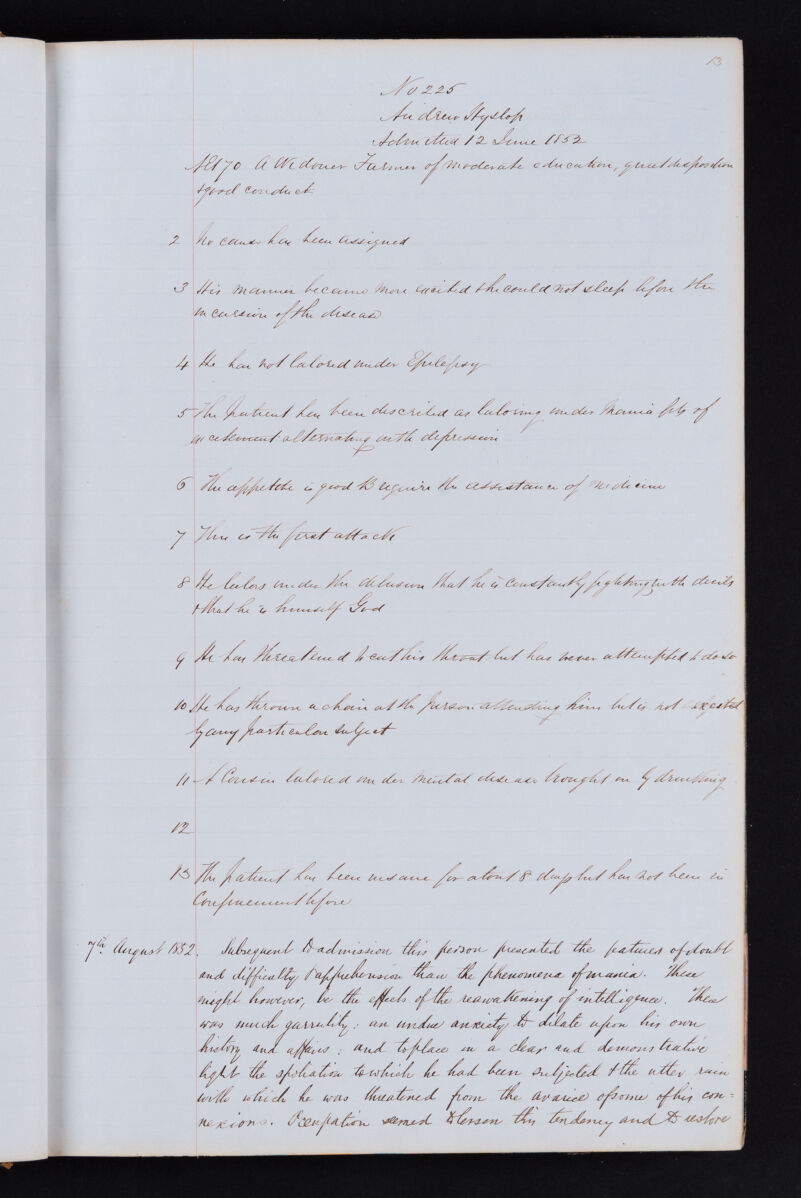 13
No 225
Andrew Hyslop
Admitted 12 June 1852
AEt 70 A Widower Farmer of moderate education, quiet disposition
& good conduct
2 No cause has been assigned
3 His manner became more excited & he could not sleep before the
incursion of the disease
4 He has not labored under Epilepsy
5 The patient has been described as laboring under Mania fits of
excitement alternating with depression
6 The appetite is good B require the assistance of medicine
7 This is the first attack
8 He labors under the delusion that he is constantly fighting with devils
& that he is himself God
9 He has threatened to cut his throat but has never attempted to do so
10 He has thrown a chair at the person attending him but is not excited
by any particular subject
11 A Cousin labored under mental disease brought on by drinking
12
13 The patient has been insane for about 8 days but has not been in
Confinement before
7th August 1852. Subsequent to admission this person presented the features of doubt
and difficulty & apprehension than the phenomena of mania. These
might however, be the effects of the reawakening of intelligence. There
was much garrulity: an undue anxiety to dilate upon his own
history and affairs: and to place in a clear and demonstrative
light the spoliation to which he had been subjected & the utter ruin
with which he was threatened from the avarice of some of his con=
nexions. Occupation seemed to lessen this tendency and to restore